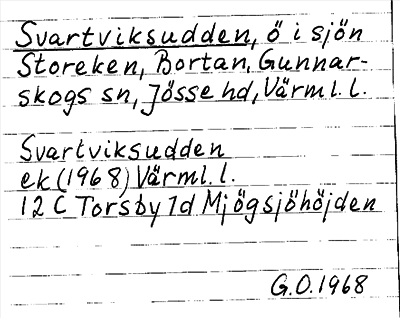 Svartviksudden, ö i sjön
Storeken, Bortan, Gunnar-
skogs sn, Jösse hd, Värml. l.
Svartviksudden
ek (1968) Värml. l.
12 C Torsby 7d Mjögsjöhöjden
G.O. 1968